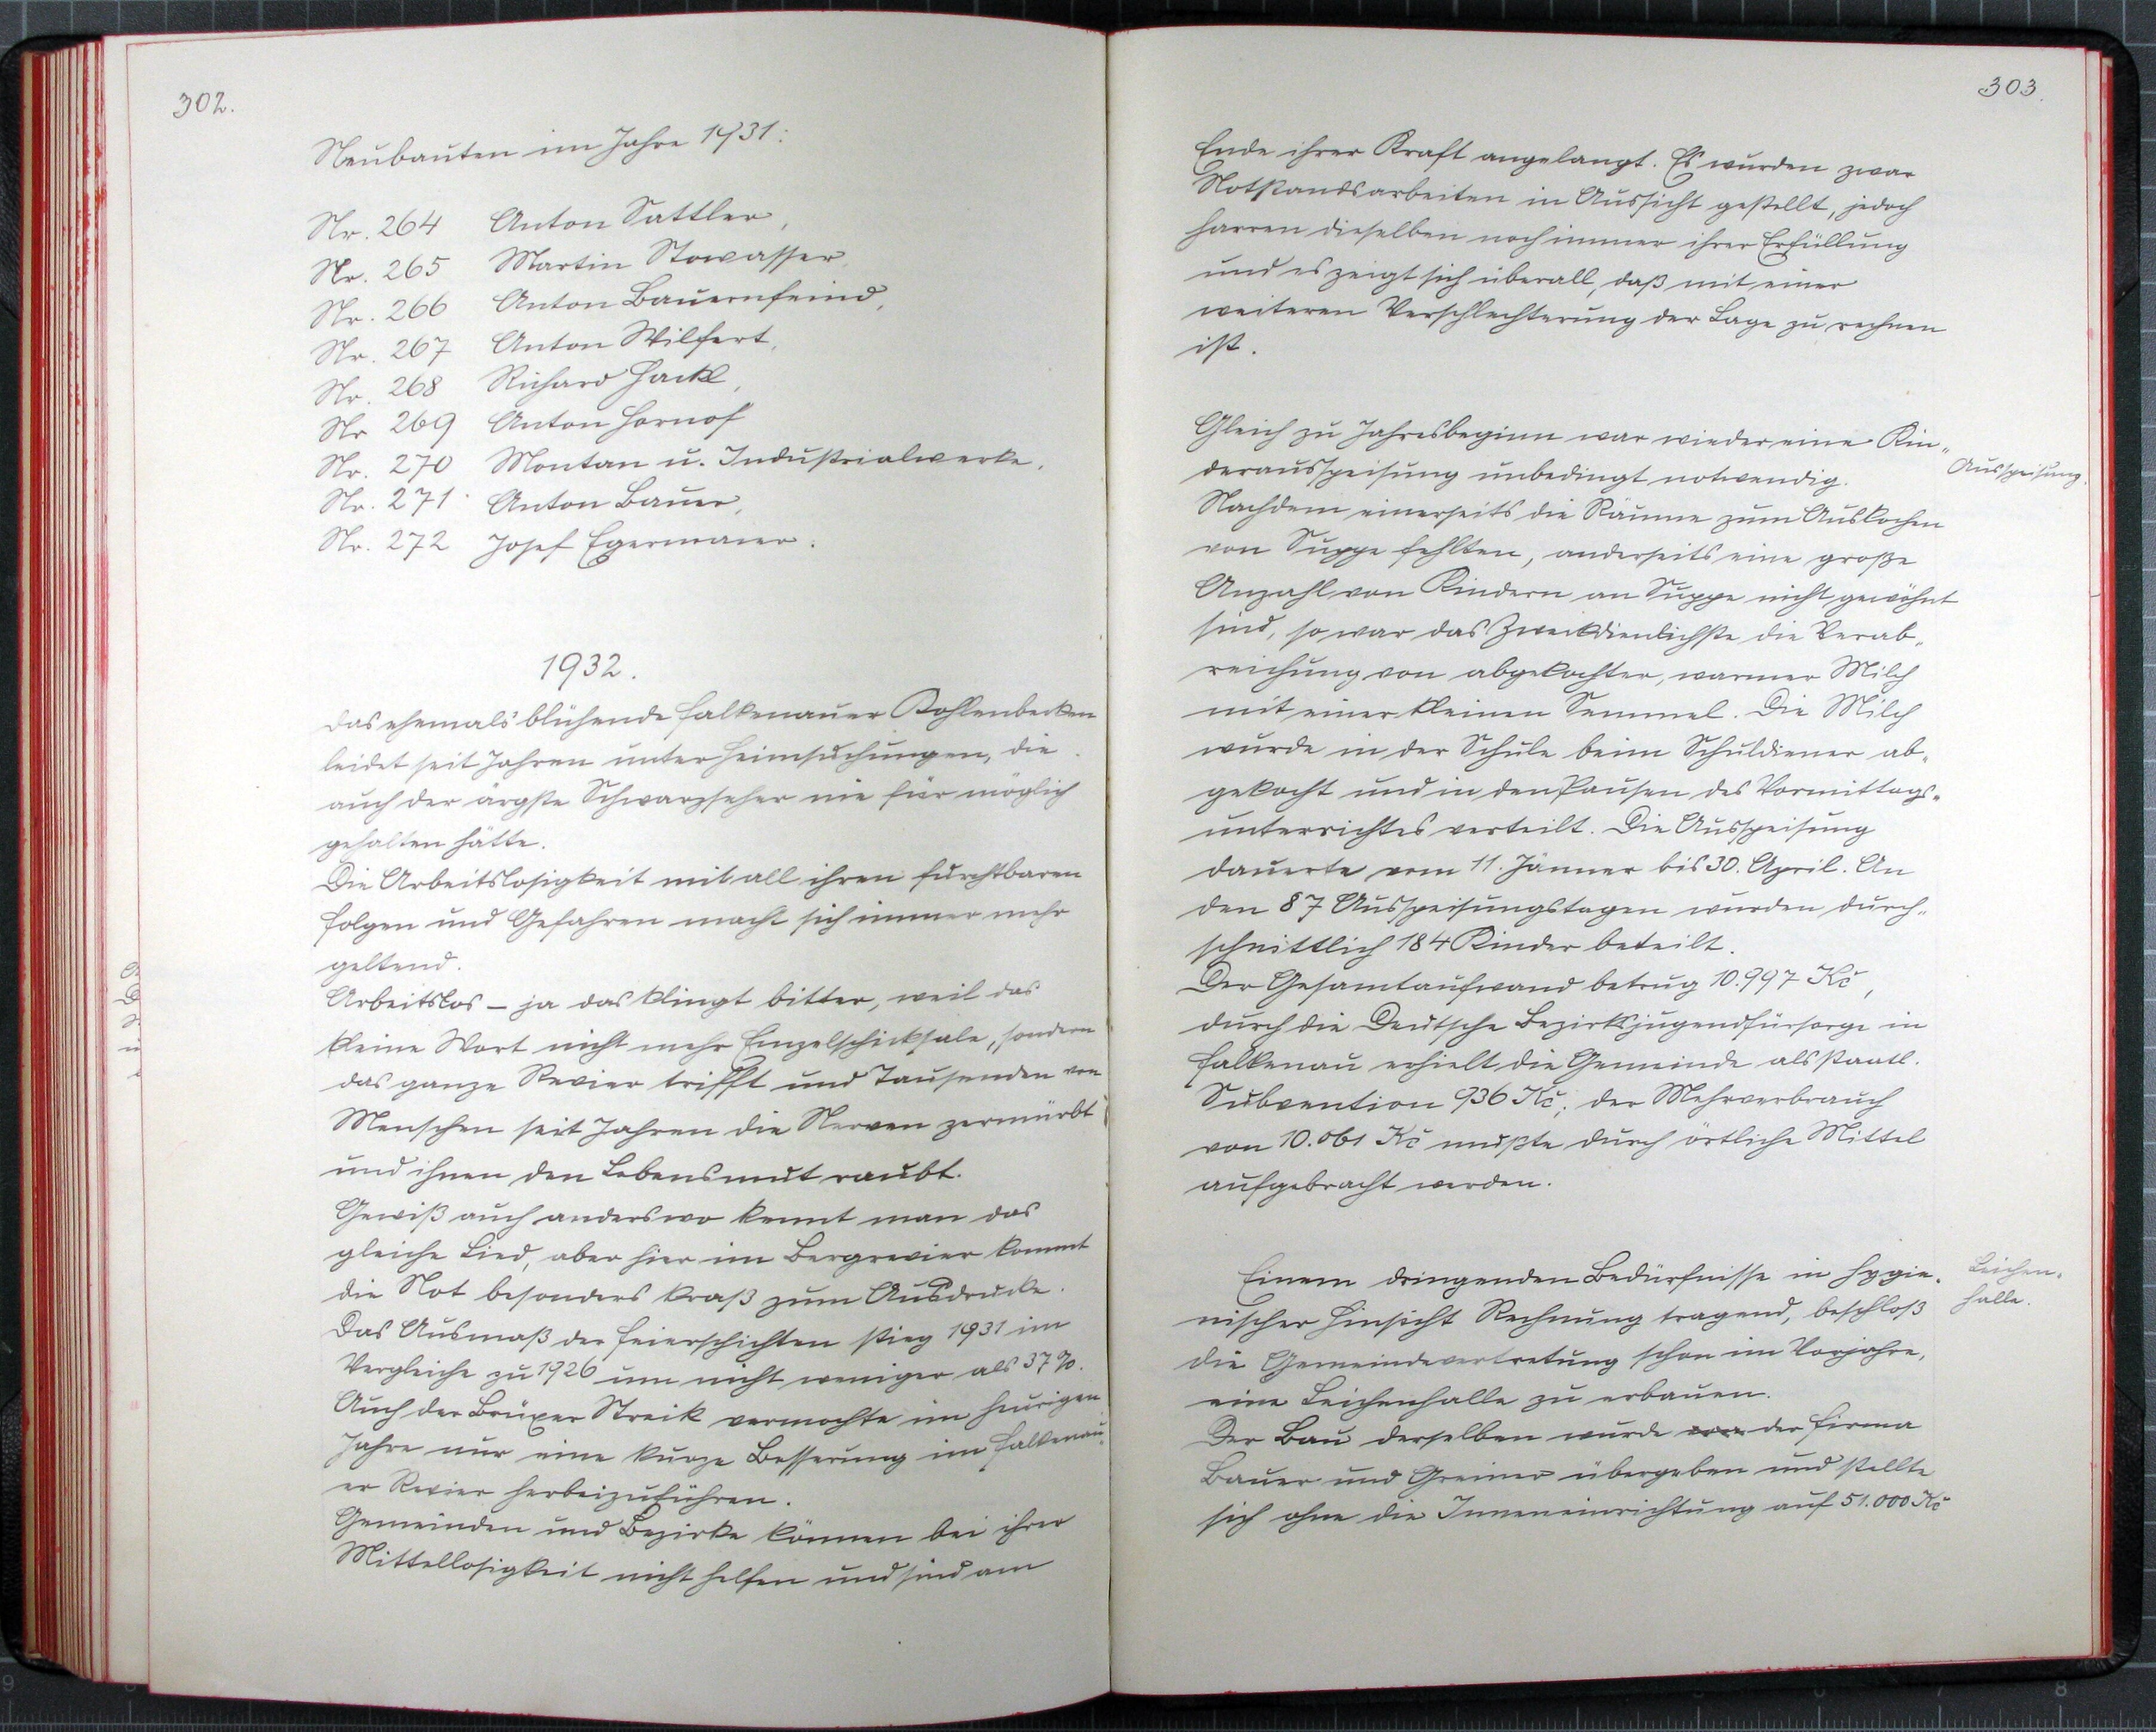 302.
Neubauten im Jahre 1931:
Nr. 264 Anton Sattler,
Nr. 265 Martin Stowasser,
Nr. 266 Anton Bauernfeind,
Nr. 267 Anton Wilfert,
Nr. 268 Richard Hackl,
Nr 269 Anton Hornof
Nr. 270 Montan u. Industrialwerke.
Nr. 271 Anton Bauer,
Nr. 272 Josef Egermaier.
1932.
Das ehemals blühende Falkenauer Kohlenbecken
leidet seit Jahren unter Heimsuchungen, die
auch der ärgste Schwarzseher nie für möglich
gehalten hätte.
Die Arbeitslosigkeit mit all ihren furchtbaren
Folgen und Gefahren macht sich immer mehr
geltend.
Arbeitslos – ja das klingt bitter, weil das
kleine Wort nicht mehr Einzelschicksale, sondern
das ganze Revier trifft und Tausenden von
Menschen seit Jahren die Nerven zermürbt
und ihnen den Lebensmut raubt.
Gewiß auch anderswo kennt man das
gleiche Lied, aber hier im Bergrevier kommt
die Not besonders kraß zum Ausdrucke.
Das Ausmaß der Feierschichten stieg 1931 im
Vergleiche zu 1926 um nicht weniger als 37%.
Auch der Brüxer Streik vermochte im heurigen
Jahre nur eine kurze Besserung im Falkenau-
er Revier herbeizuführen.
Gemeinden und Bezirke können bei ihrer
Mittellosigkeit nicht helfen und sind am
303.
Ende ihrer Kraft angelangt. Es wurden zwar
Notstandsarbeiten in Aussicht gestellt, jedoch
harren dieselben noch immer ihrer Erfüllung
und es zeigt sich überall, daß mit einer
weiteren Verschlechterung der Lage zu rechnen
ist.
Gleich zu Jahresbeginn war wieder eine Kin-
derausspeisung unbedingt notwendig.
Ausspeisung.
Nachdem einerseits die Räume zum Auskochen
von Suppe fehlten, anderseits eine große
Anzahl von Kindern an Suppe nicht gewöhnt
sind, so war das Zweckdienlichste die Verab-
reichung von abgekochter, warmer Milch
mit einer kleinen Semmel. Die Milch
wurde in der Schule beim Schuldiener ab-
gekocht und in den Pausen des Vormittags-
unterrichtes verteilt. Die Ausspeisung
dauerte vom 11. Jänner bis 30. April. An
den 87 Ausspeisungstagen wurden durch-
schnittlich 184 Kinder beteilt.
Der Gesamtaufwand betrug 10.997 Kč,
durch die Deutsche Bezirksjugendfürsorge in
Falkenau erhielt die Gemeinde als staatl.
Subvention 936 Kč; der Mehrverbrauch
von 10.061 Kč mußte durch örtliche Mittel
aufgebracht werden.
Einem dringenden Bedürfnisse in hygie-
nischer Hinsicht Rechnung tragend, beschloß
Leichen-
halle.
die Gemeindevertretung schon im Vorjahre,
eine Leichenhalle zu erbauen.
Der Bau derselben wurde von der Firma
Bauer und Greiner übergeben und stellte
sich ohne die Inneneinrichtung auf 51.000 Kč